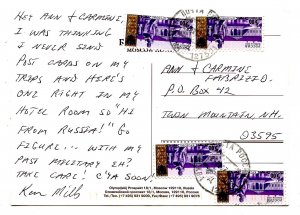 HEY ANN & CARMINE,
I WAS THINKING
I NEVER SEND
POST CARDS ON MY
TRIPS AND HERE'S
ONE RIGHT IN MY
HOTEL ROOM SO "HI
FROM RUSSIA!" GO
FIGURE... WITH MY
PAST MILITARY EH?
TAKE CARE! C'YA SOON!
Ken Mills
ANN & CARMINE
FABRIZIO
P.O. BOX 42
TWIN MOUNTAIN, NH.
03595
Olympijskij Prospect 18/1, Moscow 129110, Russia
Олимпийский проспект 18/1, Москва 129110, Россия